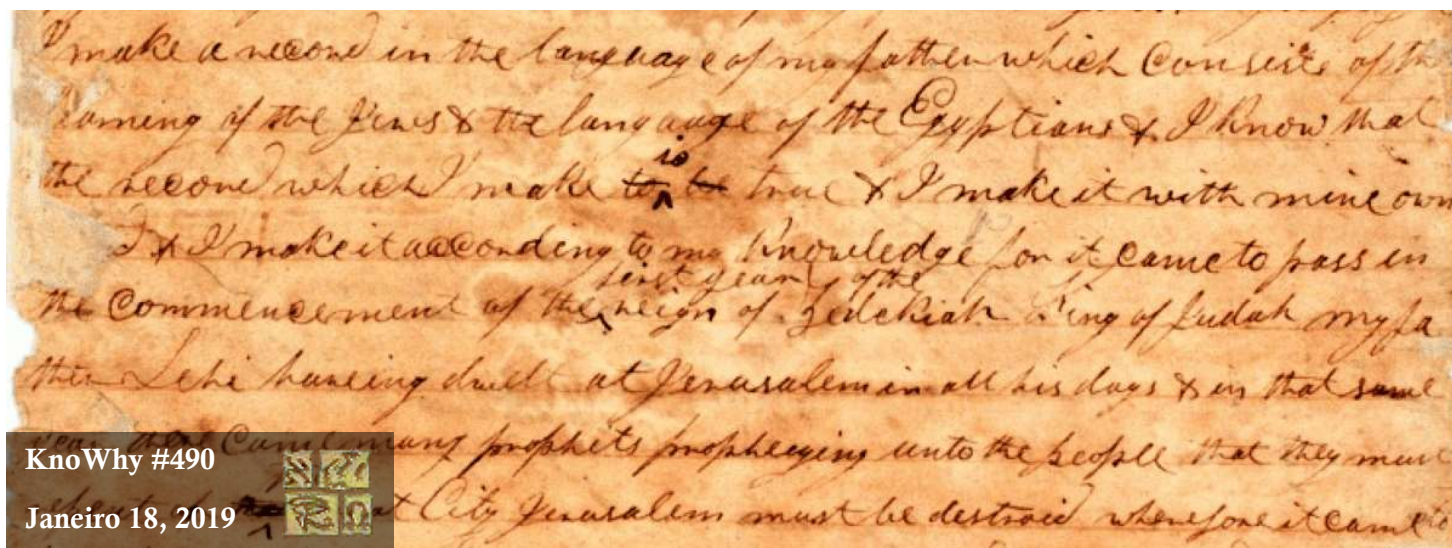 make a record in the language of my father which consists of the
of the Jews & the language of the Egyptians & I know that
is
the record which I make to be true & I make it with mine own
& I make it according to my knowledge for it came to pass in
first year of the
the commencement of the reign of Zedekiah King of Judah my fa
ther Lehi haveing dwelt at Jerusalem in all his days & in that same
there came many prophets prophesying unto the people that they must
City Jerusalem must be destroid wherefore it came to
KnoWhy #490
Janeiro 18, 2019